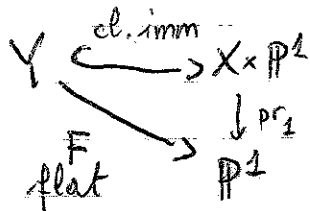 cl. imm
Y ↪ X × ℙ¹
↓ pr₁
F
flat
ℙ¹